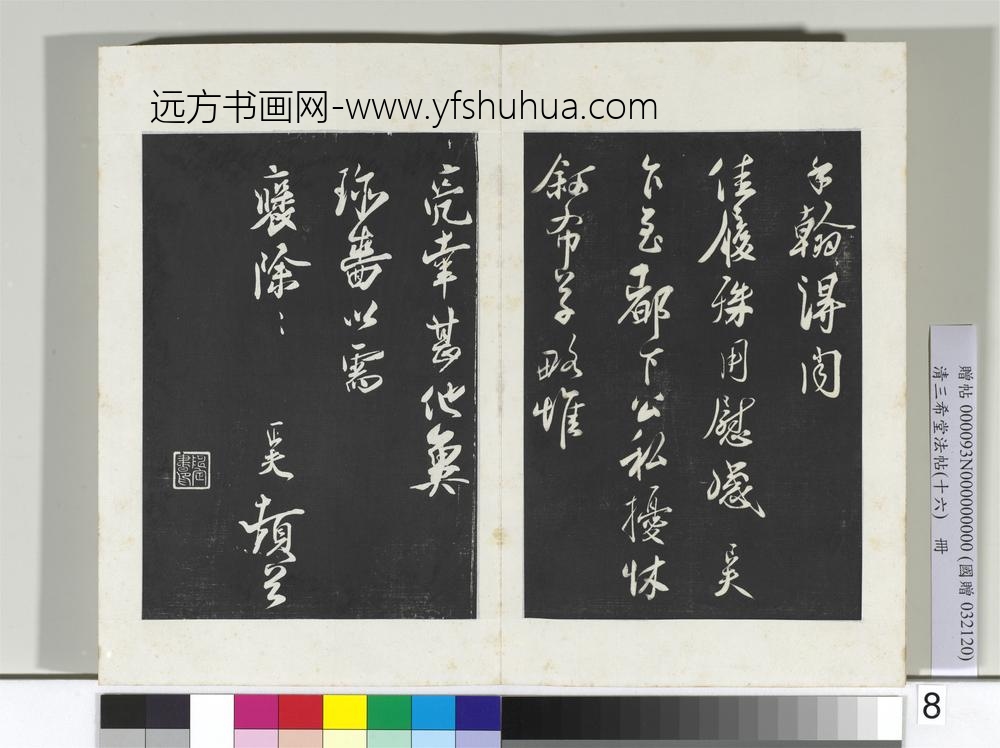 远方书画网-www.yfshuhua.com
手翰淂闻
佳履殊用慰感 昊
乍至都下公私擾
叙布草略惟
亮幸甚他冀
珎嗇以需
襃除〻 昊 頓首
贈帖 000093N000000000 (國贈 032120)
清三希堂法帖(十六) 冊
8